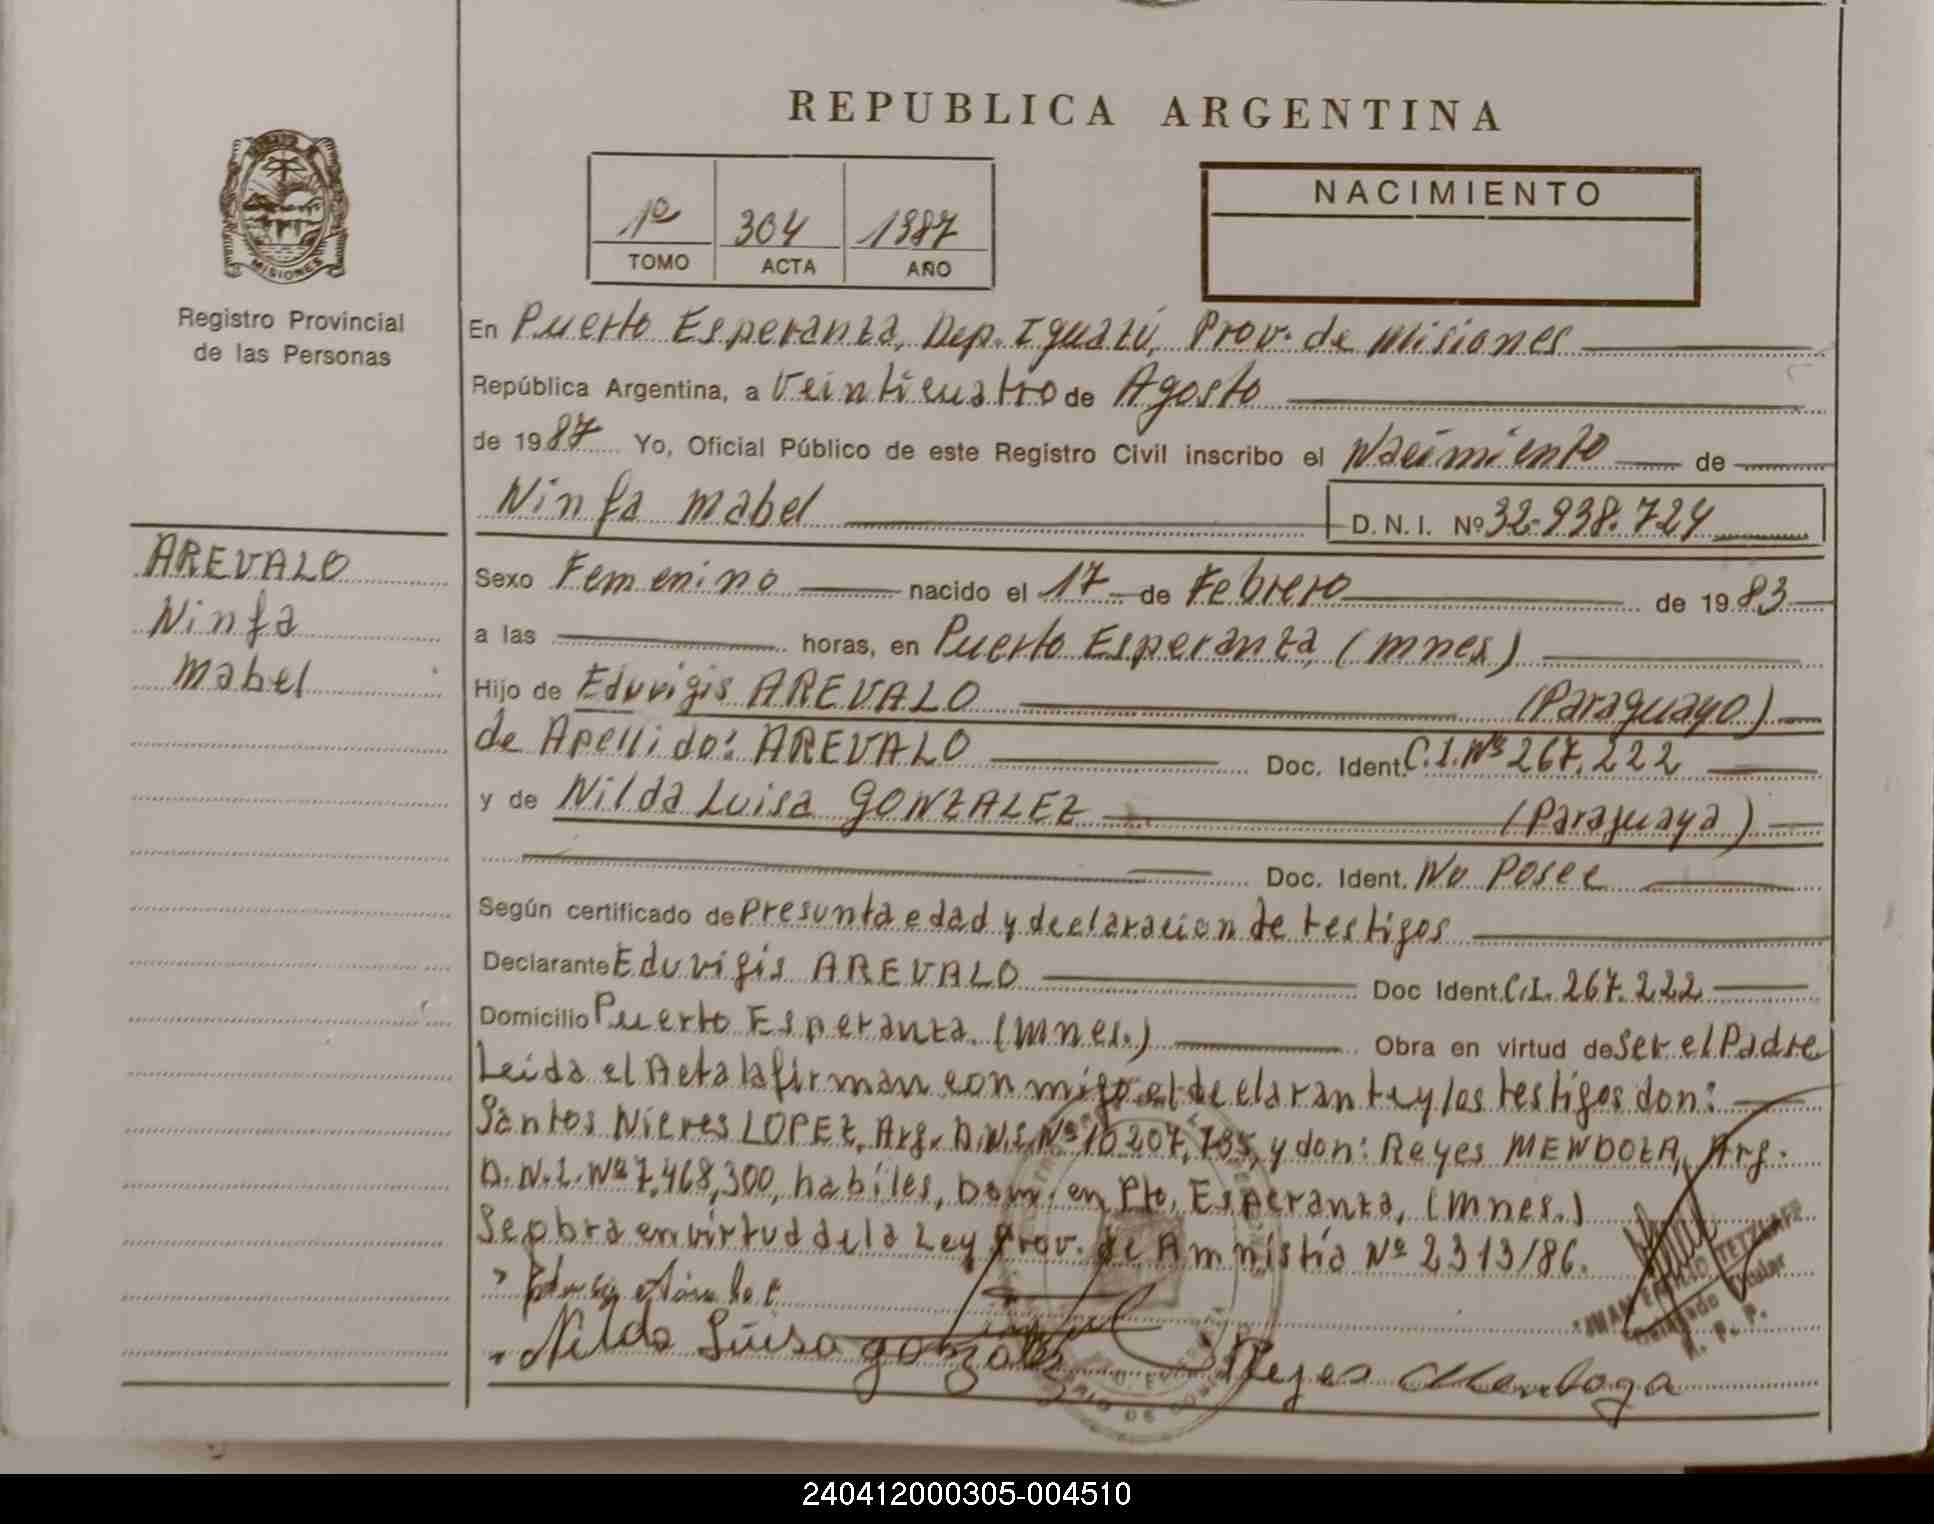 REPUBLICA ARGENTINA
1º 304 1987
TOMO ACTA AÑO
NACIMIENTO
MISIONES
Registro Provincial
de las Personas
AREVALO
Ninfa
Mabel
En Puerto Esperanza, Dep. Iguazú, Prov. de Misiones
República Argentina, a Veinticuatro de Agosto
de 1987 Yo, Oficial Público de este Registro Civil inscribo el Nacimiento de
Ninfa Mabel D.N.I. Nº 32.938.724
Sexo Femenino nacido el 17 de Febrero de 1983
a las horas, en Puerto Esperanza, (Mnes)
Hijo de Eduvigis AREVALO (Paraguayo)
de Apellido: AREVALO Doc. Ident. C.I. Nº 267.222
y de Nilda Luisa GONZALEZ (Paraguaya)
Doc. Ident. No Posee
Según certificado de Presunta edad y declaracion de testigos
Declarante Eduvigis AREVALO Doc Ident. C.I. 267.222
Domicilio Puerto Esperanza. (Mnes.) Obra en virtud de Ser el Padre
Leída el Acta la firman conmigo el declarante y los testigos don:
Santos Nieres LOPEZ, Arg. D.N.I. Nº 10.207,735, y don: Reyes MENDOZA, Arg.
D.N.I. Nº 7,468,300, habiles, Dom. en Pto. Esperanza, (Mnes.)
Se obra en virtud de la Ley Prov. de Amnistía Nº 2313/86.
Nilda Luisa gonzales Reyes Mendoza
JUAN TETZLAFF
Titular
R. P. P.
240412000305-004510